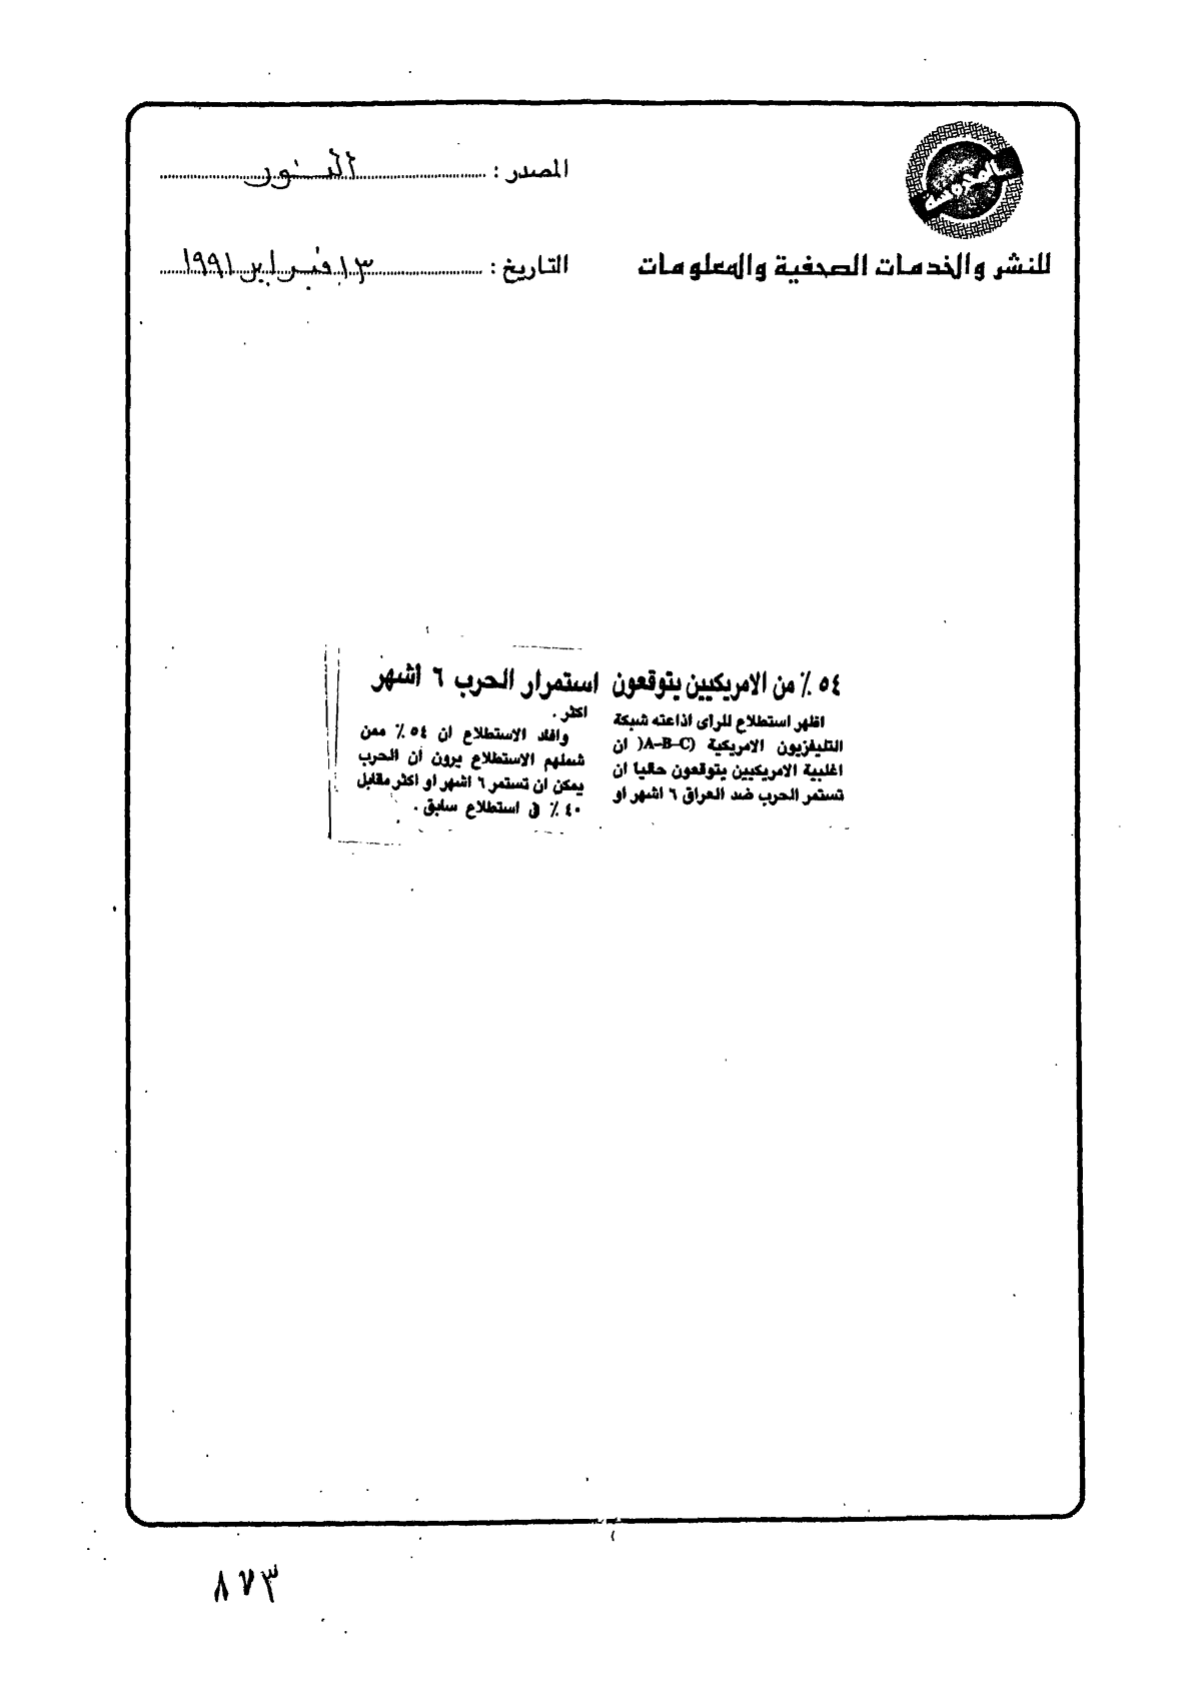 المحروسة
للنشر والخدمات الصحفية والمعلومات
المصدر : النور
التاريخ : ١٣ فبراير ١٩٩١
٥٤ ٪ من الامريكيين يتوقعون استمرار الحرب ٦ اشهر
اظهر استطلاع للراى اذاعته شبكة
التليفزيون الامريكية (A-B-C( ان
اغلبية الامريكيين يتوقعون حاليا ان
تستمر الحرب ضد العراق ٦ اشهر او
اكثر .
وافاد الاستطلاع ان ٥٤ ٪ ممن
شملهم الاستطلاع يرون ان الحرب
يمكن ان تستمر ٦ اشهر او اكثر مقابل
٤٠ ٪ فى استطلاع سابق .
٨٧٣